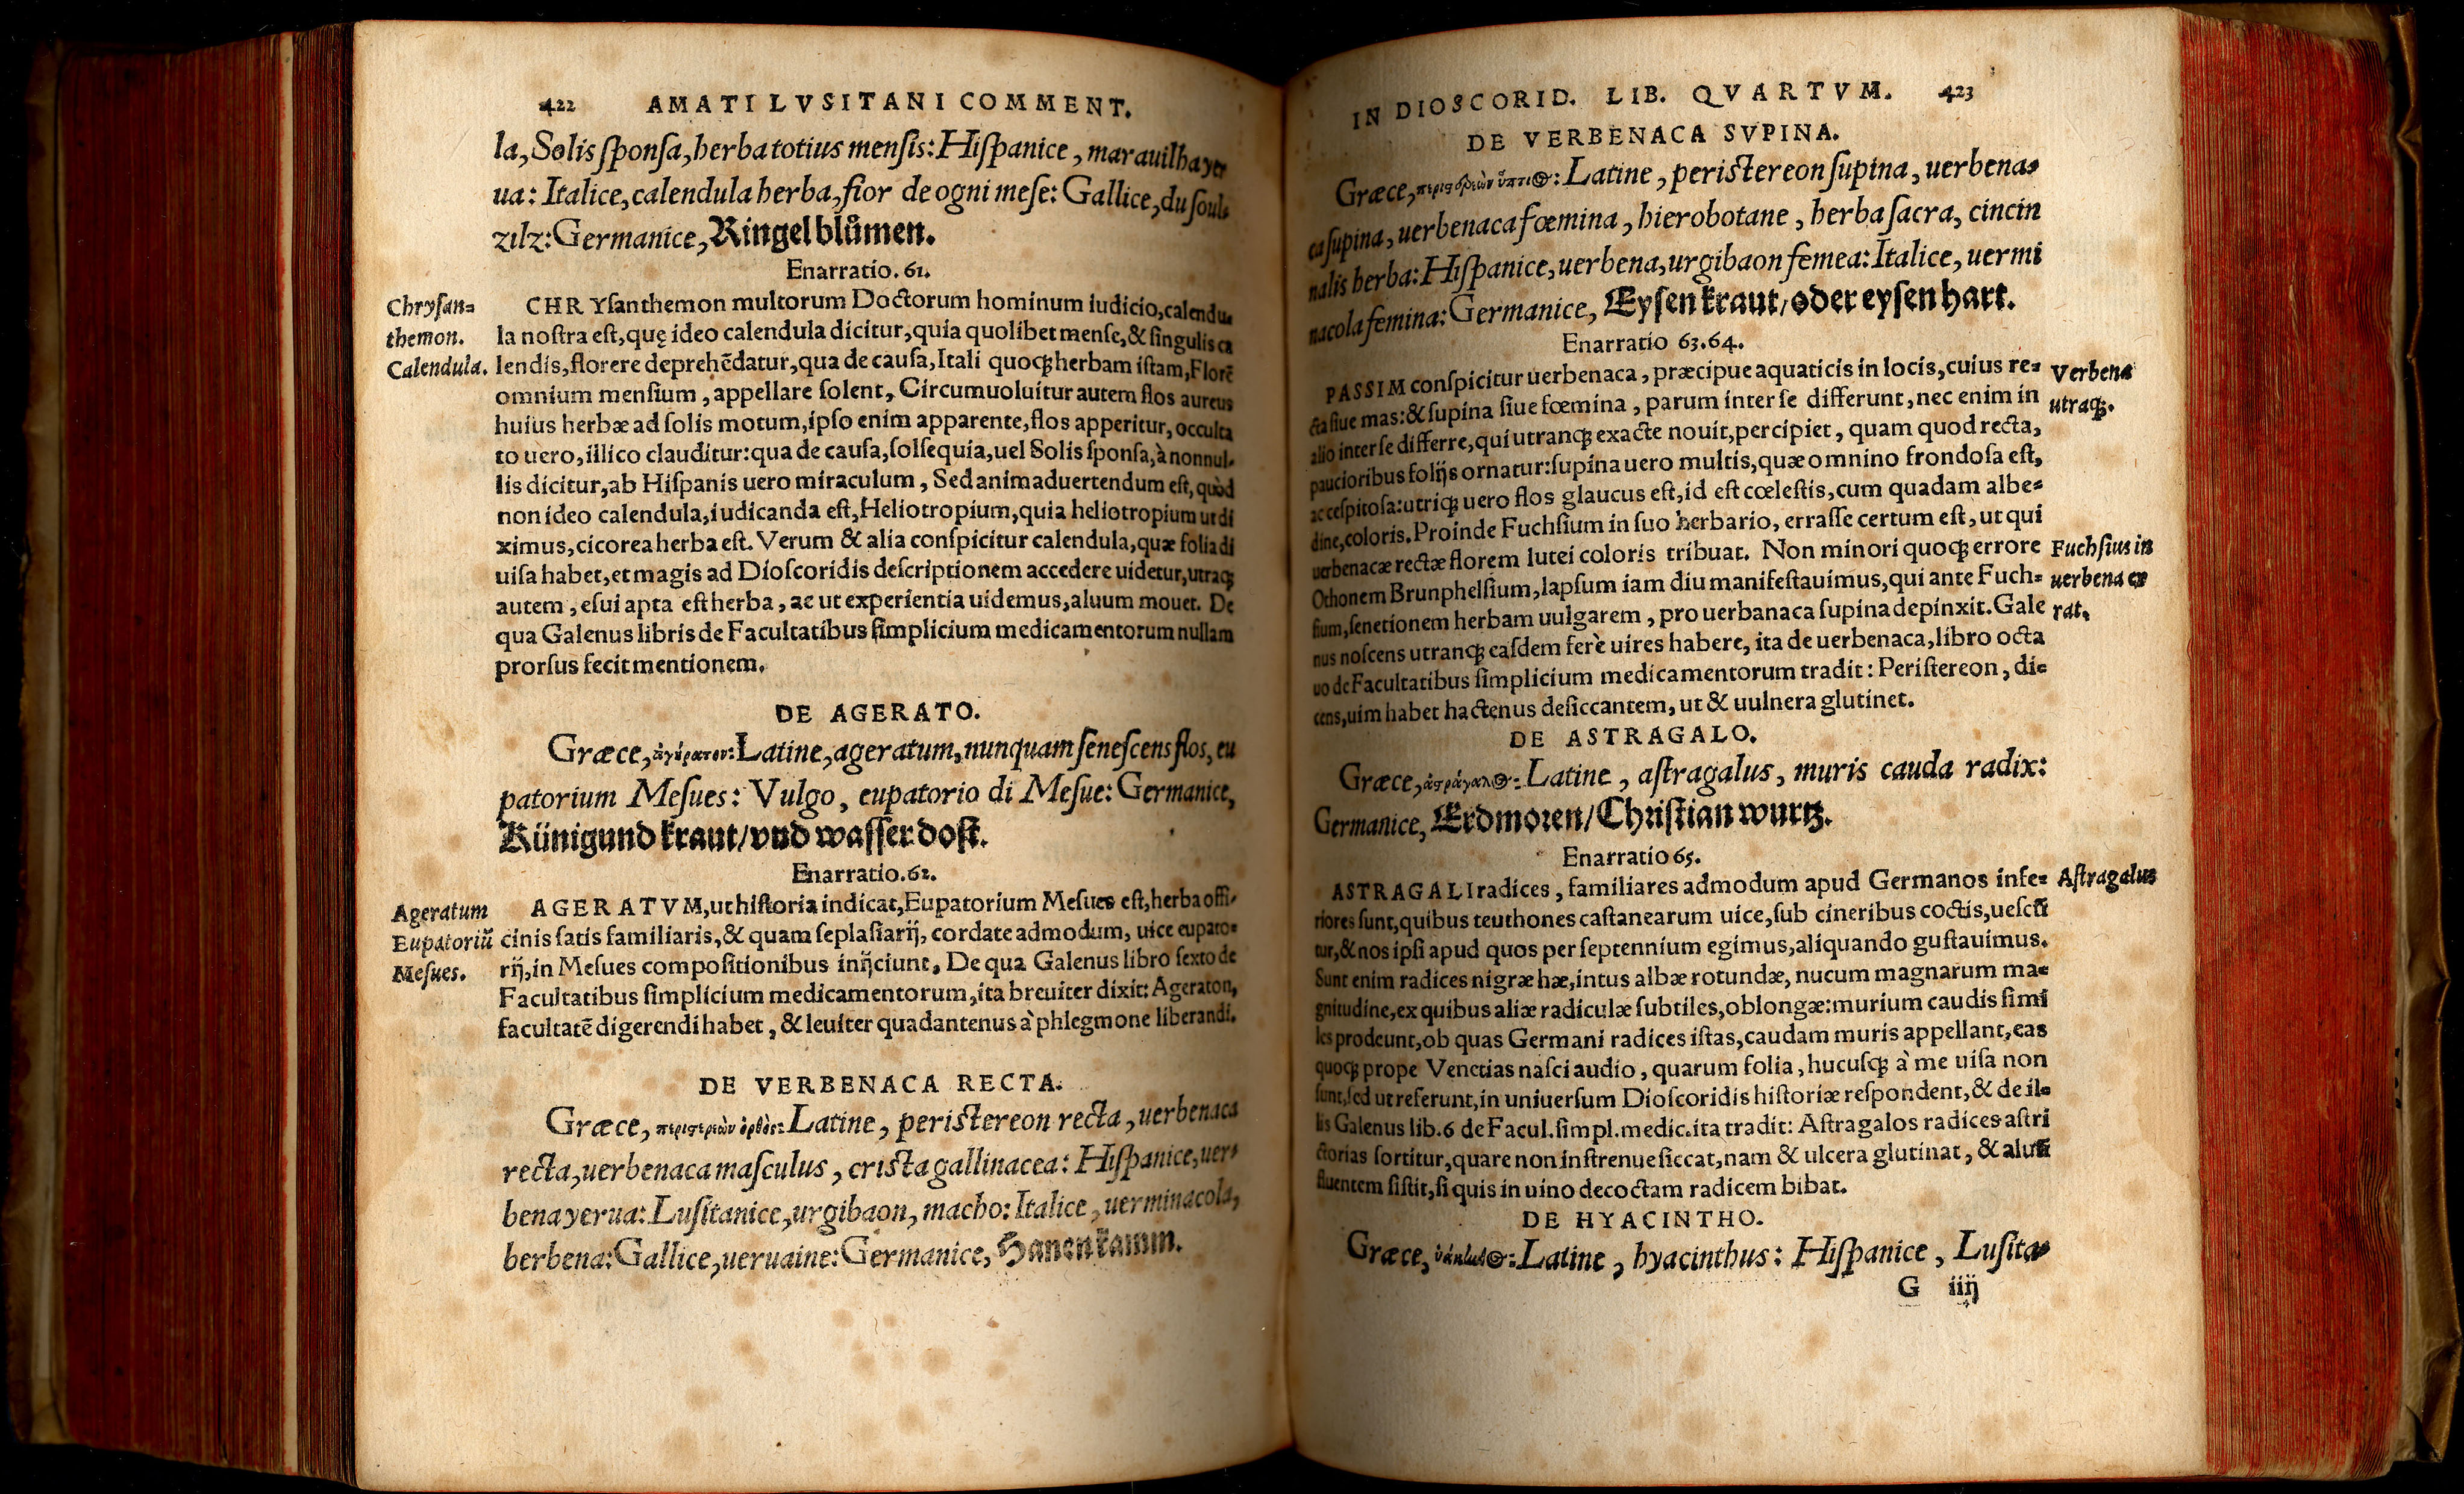 422 AMATI LVSITANI COMMENT.
la, Solis ſponſa, herba totius menſis: Hiſpanice, marauilha yer
ua: Italice, calendula herba, fior de ogni meſe: Gallice, du ſoul-
zilz: Germanice, Ringelblůmen.
Enarratio. 61.
Chryſan=
themon.
Calendula.
CHRYſanthemon multorum Doctorum hominum iudicio, calendu=
la noſtra eſt, quę ideo calendula dicitur, quia quolibet menſe, & ſingulis ca
lendis, florere deprehēdatur, qua de cauſa, Itali quoqꝫ herbam iſtam, Florē
omnium menſium, appellare ſolent, Circumuoluitur autem flos aureus
huius herbæ ad ſolis motum, ipſo enim apparente, flos apperitur, occulta
to uero, illico clauditur: qua de cauſa, ſolſequia, uel Solis ſponſa, à nonnul-
lis dicitur, ab Hiſpanis uero miraculum, Sed animaduertendum eſt, quòd
non ideo calendula, iudicanda eſt, Heliotropium, quia heliotropium ut di
ximus, cicorea herba eſt. Verum & alia conſpicitur calendula, quæ folia di
uiſa habet, et magis ad Dioſcoridis deſcriptionem accedere uidetur, utraqꝫ
autem, eſui apta eſt herba, ac ut experientia uidemus, aluum mouet. De
qua Galenus libris de Facultatibus ſimplicium medicamentorum nullam
prorſus fecit mentionem.
DE AGERATO.
Græce, ἀγήρατον: Latine, ageratum, nunquam ſeneſcens flos, eu
patorium Meſues: Vulgo, eupatorio di Meſue: Germanice,
Künigund kraut/vnd waſſer doſt.
Enarratio. 62.
Ageratum
Eupatoriũ
Meſues.
AGERATVM, ut hiſtoria indicat, Eupatorium Meſues eſt, herba offi-
cinis ſatis familiaris, & quam ſeplaſiarij, cordate admodum, uice eupato=
rij, in Meſues compoſitionibus inijciunt. De qua Galenus libro ſexto de
Facultatibus ſimplicium medicamentorum, ita breuiter dixit: Ageraton,
facultatē digerendi habet, & leuiter quadantenus à phlegmone liberandi.
DE VERBENACA RECTA.
Græce, περιστερεὼν ὀρθὸς: Latine, periſtereon recta, uerbenaca
recta, uerbenaca maſculus, criſta gallinacea: Hiſpanice, uer-
bena yerua: Luſitanice, urgibaon, macho: Italice, uerminacola,
berbena: Gallice, ueruaine: Germanice, Hanenkamm.
IN DIOSCORID. LIB. QVARTVM. 423
DE VERBENACA SVPINA.
Græce, περιστερεὼν ὕπτιος: Latine, periſtereon ſupina, uerbena=
ca ſupina, uerbenaca fœmina, hierobotane, herba ſacra, cincin
nalis herba: Hiſpanice, uerbena, urgibaon femea: Italice, uermi
nacola femina: Germanice, Eyſenkraut/oder eyſenhart.
Enarratio 63. 64.
PASSIM conſpicitur uerbenaca, præcipue aquaticis in locis, cuius re=
cta ſiue mas: & ſupina ſiue fœmina, parum inter ſe differunt, nec enim in
alio inter ſe differre, qui utranqꝫ exacte nouit, percipiet, quam quod recta,
paucioribus folijs ornatur: ſupina uero multis, quæ omnino frondoſa eſt,
ac ceſpitoſa: utriqꝫ uero flos glaucus eſt, id eſt cœleſtis, cum quadam albe=
dine, coloris. Proinde Fuchſium in ſuo herbario, erraſſe certum eſt, ut qui
uerbenacæ rectæ florem lutei coloris tribuat. Non minori quoqꝫ errore
Othonem Brunphelſium, lapſum iam diu manifeſtauimus, qui ante Fuch=
ſium, ſenetionem herbam uulgarem, pro uerbanaca ſupina depinxit. Gale
nus noſcens utranqꝫ eaſdem ferè uires habere, ita de uerbenaca, libro octa
uo de Facultatibus ſimplicium medicamentorum tradit: Periſtereon, di=
cens, uim habet hactenus deſiccantem, ut & uulnera glutinet.
Verbena
utraqꝫ.
Fuchſius in
uerbena er
rat.
DE ASTRAGALO.
Græce, ἀστράγαλος: Latine, aſtragalus, muris cauda radix:
Germanice, Erdmoren/Chriſtian wurtz.
Enarratio 65.
ASTRAGALI radices, familiares admodum apud Germanos infe=
riores ſunt, quibus teuthones caſtanearum uice, ſub cineribus coctis, ueſcũ
tur, & nos ipſi apud quos per ſeptennium egimus, aliquando guſtauimus.
Sunt enim radices nigræ hæ, intus albæ rotundæ, nucum magnarum ma=
gnitudine, ex quibus aliæ radiculæ ſubtiles, oblongæ: murium caudis ſimi
les prodeunt, ob quas Germani radices iſtas, caudam muris appellant, eas
quoqꝫ prope Venetias naſci audio, quarum folia, hucuſqꝫ à me uiſa non
ſunt, ſed ut referunt, in uniuerſum Dioſcoridis hiſtoriæ reſpondent, & de il=
lis Galenus lib. 6 de Facul. ſimpl. medic. ita tradit: Aſtragalos radices aſtri
ctorias ſortitur, quare non inſtrenue ſiccat, nam & ulcera glutinat, & aluũ
fluentem ſiſtit, ſi quis in uino decoctam radicem bibat.
Aſtragalus
DE HYACINTHO.
Græce, ὑάκινθος: Latine, hyacinthus: Hiſpanice, Luſita=
G iiij